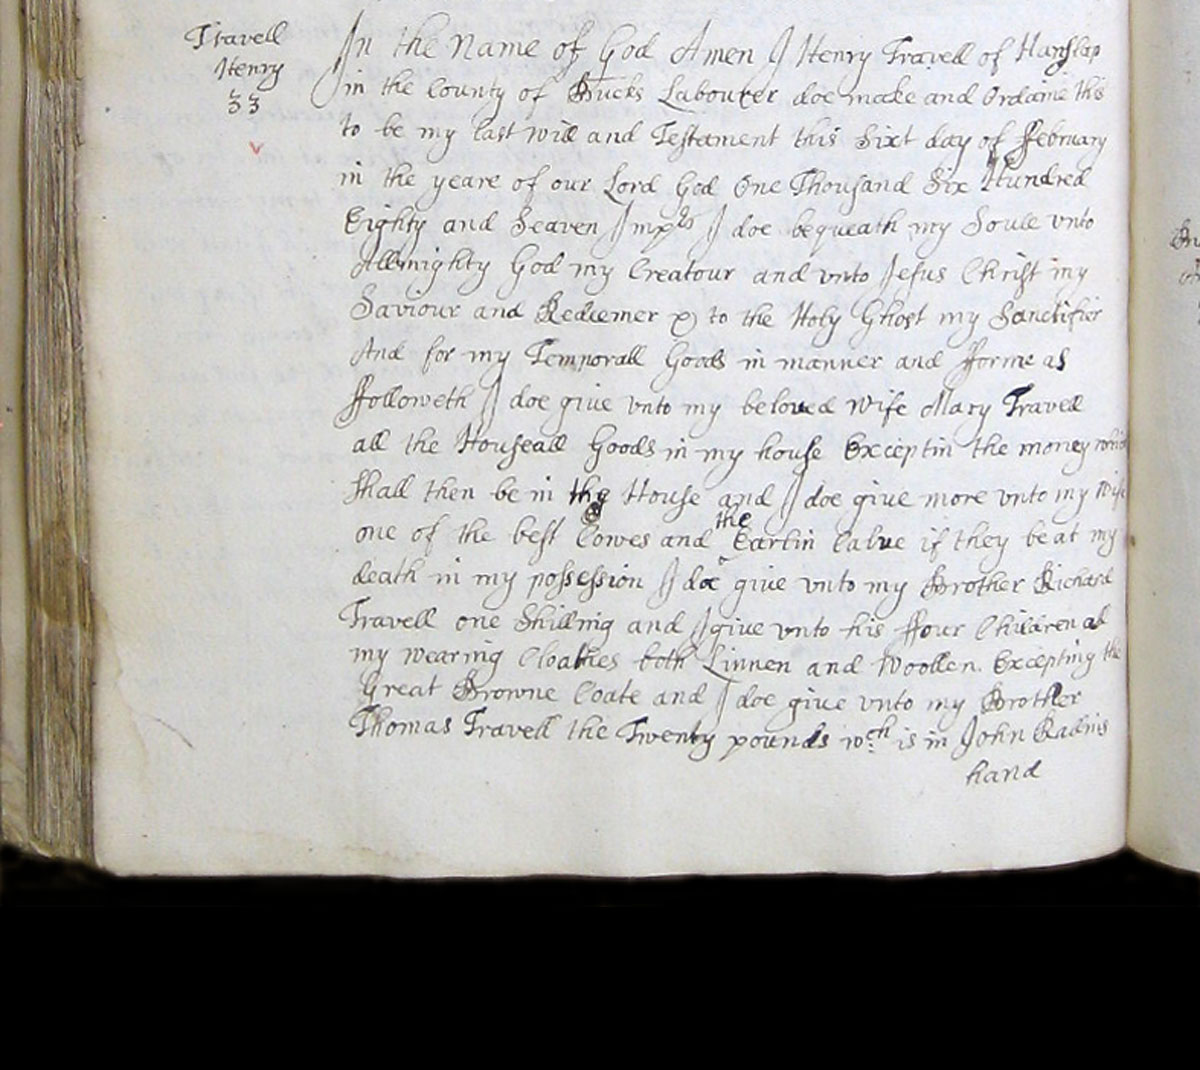 Travell
Henry
33
In the Name of God Amen I Henry Travell of Hanslap
in the County of Bucks Labourer doe make and Ordaine this
to be my last will and Testament this Sixt day of ffebruary
in the yeare of our Lord God One Thousand Six Hundred
Eighty and Seaven Imp^rs I doe bequeath my Soule vnto
Allmighty God my Creatour and vnto Jesus Christ my
Saviour and Redeemer & to the Holy Ghost my Sanctifier
And for my Temporall Goods in manner and fforme as
ffolloweth I doe give vnto my beloved Wife Mary Travell
all the Houseall Goods in my house Exceptin the money which
shall then be in the House and I doe give more vnto my Wife
one of the best Cowes and the Earlin Calve if they be at my
death in my possession I doe give vnto my Brother Richard
Travell one Shilling and I give vnto his ffour Children all
my wearing Cloathes both Linnen and Woollen. Excepting the
Great Browne Coate and I doe give vnto my Brother
Thomas Travell the Twenty pounds w^ch is in John
hand